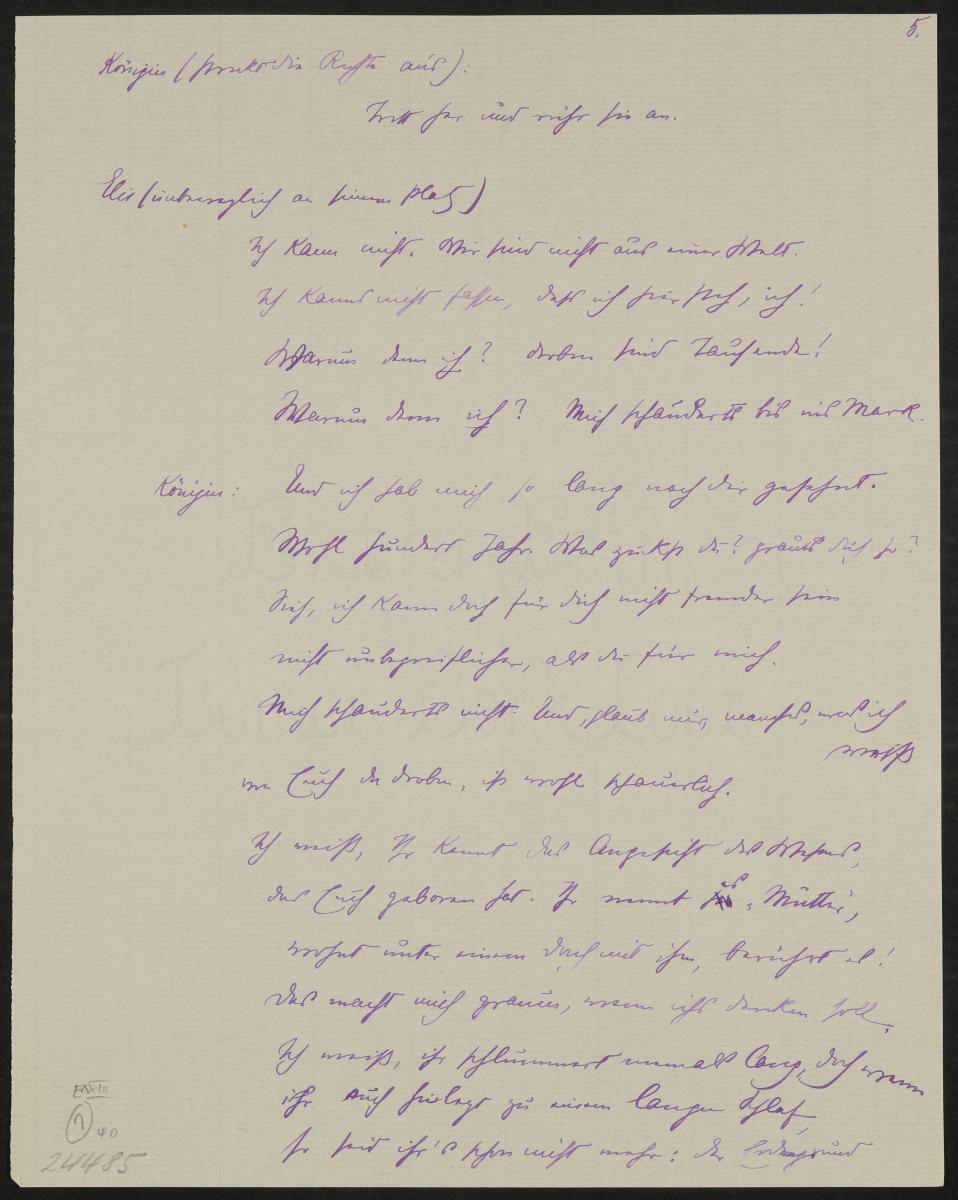 5.
Königin (streckt die Rechte aus):
Tritt her und rühr sie an.
Elis (unbeweglich an seinem Platz)
Ich kann nicht. Wir sind nicht aus einer Welt.
Ich kanns nicht fassen, dass ich hier steh, ich!
Warum denn ich? droben sind Tausende!
Warum denn ich? Mich schauderts bis ins Mark.
Königin: Und ich hab mich so lang nach dir gesehnt.
Wohl hundert Jahr. Was zuckst du? graust dich so?
Sieh, ich kann doch für dich nicht fremder sein
nicht unbegreiflicher, als du für mich.
Mich schauderts nicht. Und, glaub mir, manches, was ich
weiß
von Euch da droben, ist wohl schauerlich.
Ich weiß, Ihr kennt das Angesicht des Wesens,
das Euch geboren hat. Ihr nennt es „Mutter“,
wohnt unter einem Dach mit ihm, berührt es!
Das macht mich graun, wenn ichs denken soll.
Ich weiß, ihr schlummert niemals lang, doch wenn
ihr Euch hinlegt zu einem langen Schlaf,
so seid ihr's schon nicht mehr: der Erdengrund
40
24485